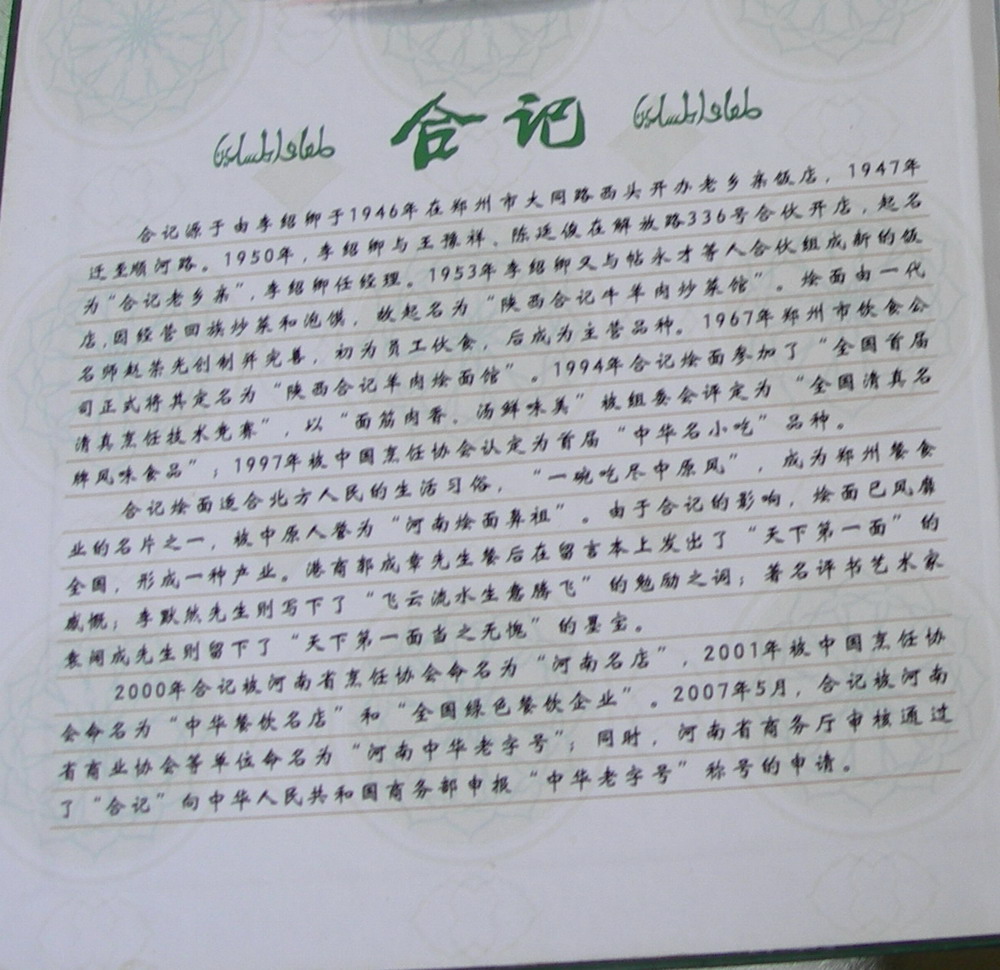 合记
合记源于由李绍卿于1946年在郑州市大同路西头开办老乡亲饭店，1947年
迁至顺河路。1950年，李绍卿与王豫祥、陈廷俊在解放路336号合伙开店，起名
为“合记老乡亲”，李绍卿任经理。1953年李绍卿又与帖永才等人合伙组成新的饭
店，因经营回族炒菜和泡馍，故起名为“陕西合记牛羊肉炒菜馆”。烩面由一代
名师赵荣光创制并完善，初为员工伙食，后成为主营品种。1967年郑州市饮食公
司正式将其定名为“陕西合记羊肉烩面馆”。1994年合记烩面参加了“全国首届
清真烹饪技术竞赛”，以“面筋肉香、汤鲜味美”被组委会评定为“全国清真名
牌风味食品”；1997年被中国烹饪协会认定为首届“中华名小吃”品种。
合记烩面适合北方人民的生活习俗，“一碗吃尽中原风”，成为郑州餐食
业的名片之一，被中原人誉为“河南烩面鼻祖”。由于合记的影响，烩面已风靡
全国，形成一种产业。港商郭成章先生餐后在留言本上发出了“天下第一面”的
感慨；李默然先生则写下了“飞云流水生意腾飞”的勉励之词；著名评书艺术家
袁阔成先生则留下了“天下第一面当之无愧”的墨宝。
2000年合记被河南省烹饪协会命名为“河南名店”，2001年被中国烹饪协
会命名为“中华餐饮名店”和“全国绿色餐饮企业”。2007年5月，合记被河南
省商业协会等单位命名为“河南中华老字号”；同时，河南省商务厅审核通过
了“合记”向中华人民共和国商务部申报“中华老字号”称号的申请。